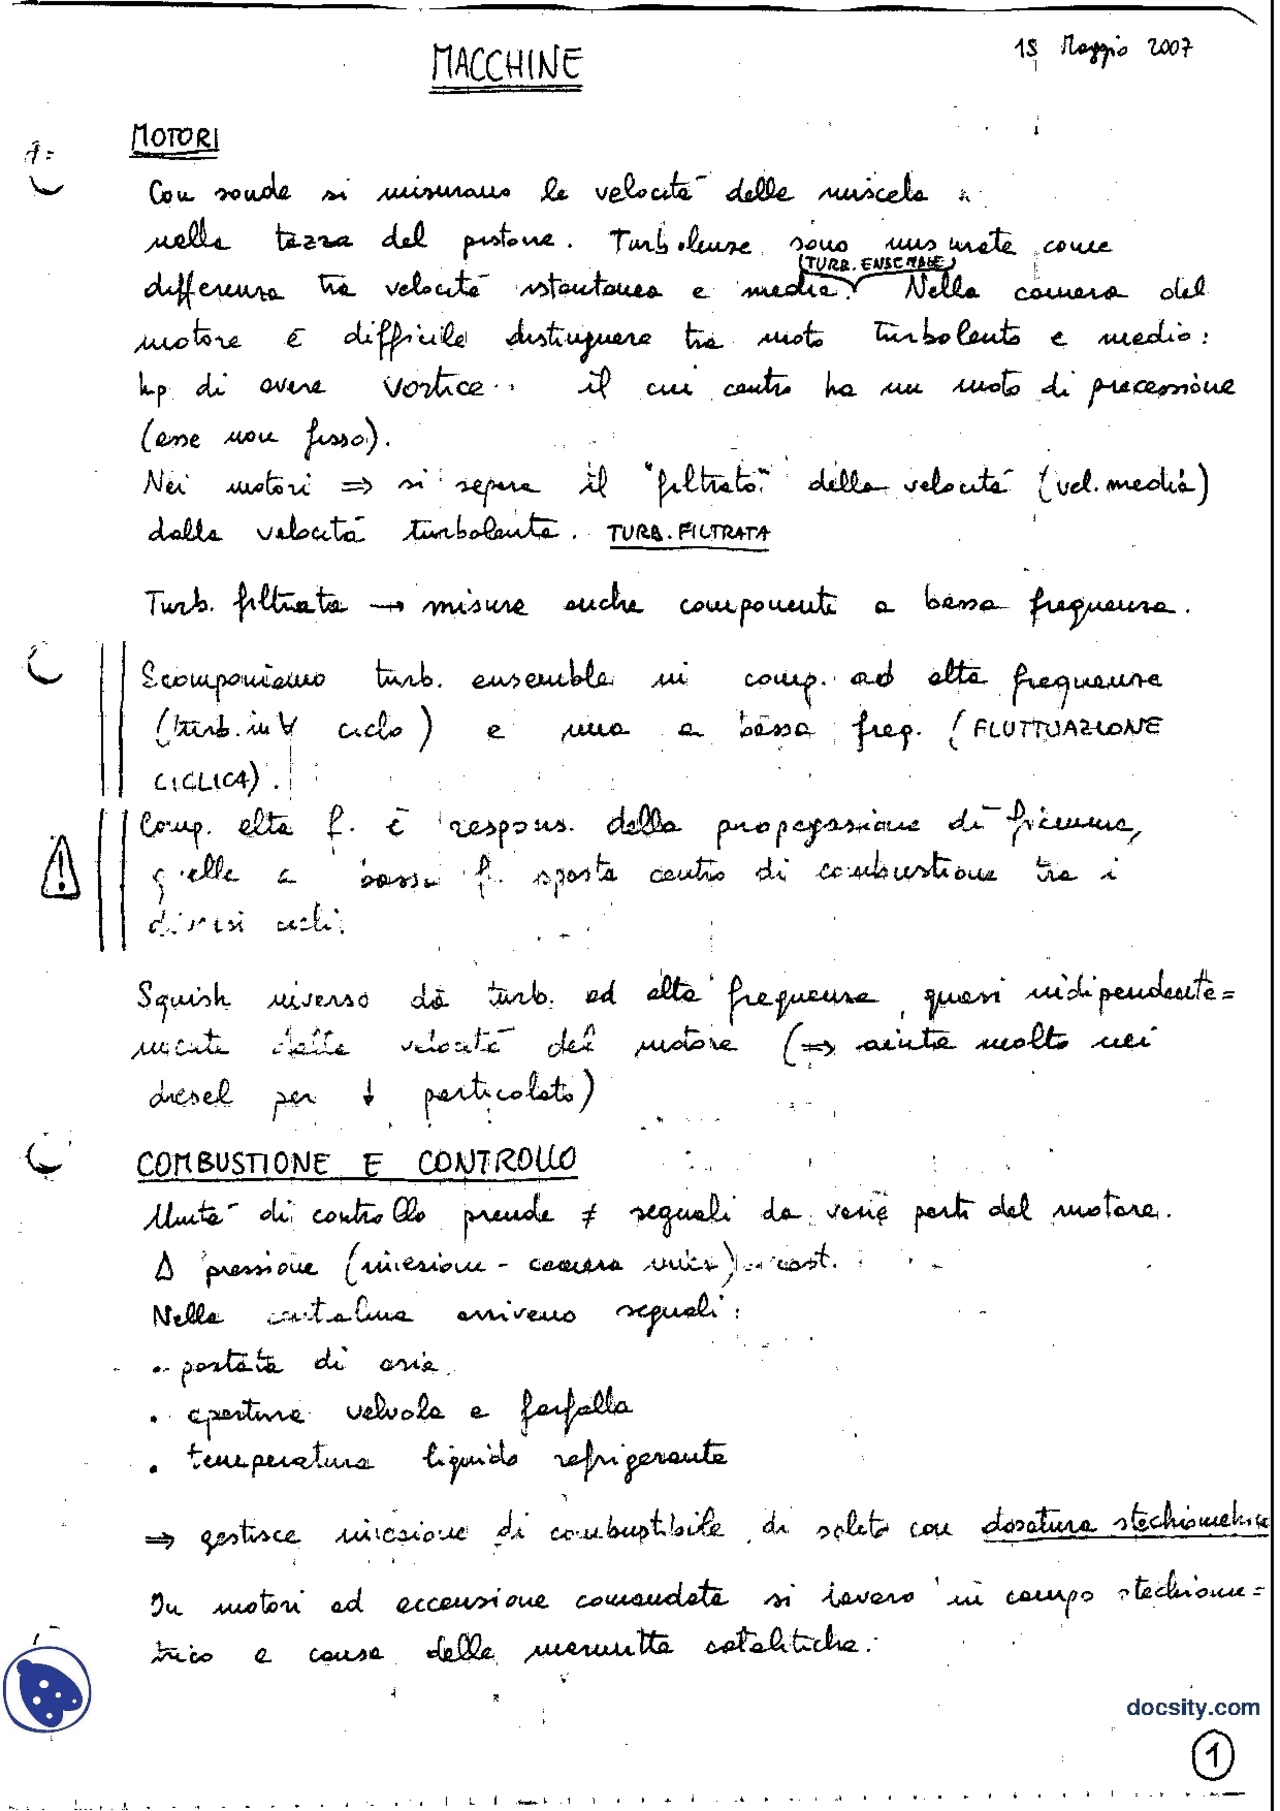 MACCHINE
15 Maggio 2007
MOTORI
Con sonde si misurano le velocità delle miscela
nella tazza del pistone. Turbolenze sono misurate come
(TURB. ENSEMBLE)
differenza tra velocità istantanea e media. Nella camera del
motore è difficile distinguere tra moto turbolento e medio:
hp di avere vortice il cui centro ha un moto di precessione
(asse non fisso).
Nei motori ⇒ si separa il "filtrato" della velocità (vel. media)
dalla velocità turbolenta. TURB. FILTRATA
Turb. filtrata → misura anche componenti a bassa frequenza.
Scomponiamo turb. ensemble in comp. ad alta frequenza
(turb. in ∀ ciclo) e una a bassa freq. (FLUTTUAZIONE
CICLICA).
Comp. alta f. è respons. della propagazione di fiamma,
quella a bassa f. sposta centro di combustione tra i
diversi cicli.
Squish inverso dà turb. ad alta frequenza, quasi indipendente=
mente dalla velocità del motore (⇒ aiuta molto nei
diesel per ↓ particolato)
COMBUSTIONE E CONTROLLO
Unità di controllo prende ≠ segnali da varie parti del motore.
Δ pressione (iniezione - camera unica) cost.
Nella centralina arrivano segnali:
• portata di aria
• apertura valvola a farfalla
• temperatura liquido refrigerante
⇒ gestisce iniezione di combustibile, di solito con dosatura stechiometrica
In motori ad accensione comandata si lavora in campo stechiome=
trico a causa delle marmitte catalitiche.
docsity.com
1